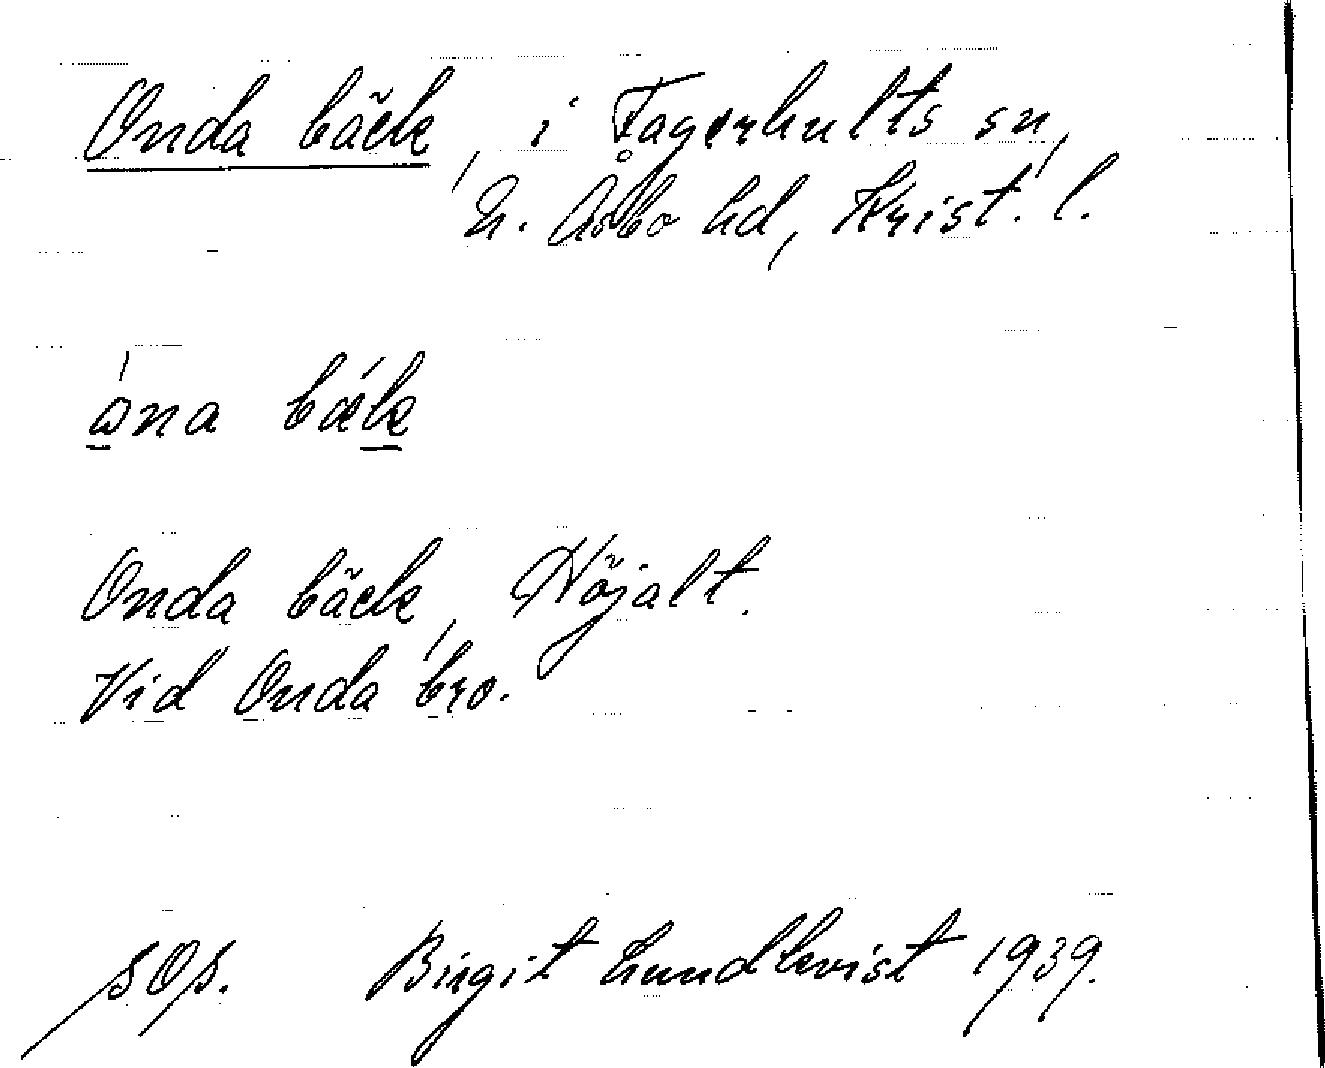 Onda bäck, i Fagerhults sn,
N. Åsbo hd, Krist. l.
ȧna bæk
Onda bäck, Höjalt.
Vid Onda bro.
sOs. Birgit Lundkvist 1939.